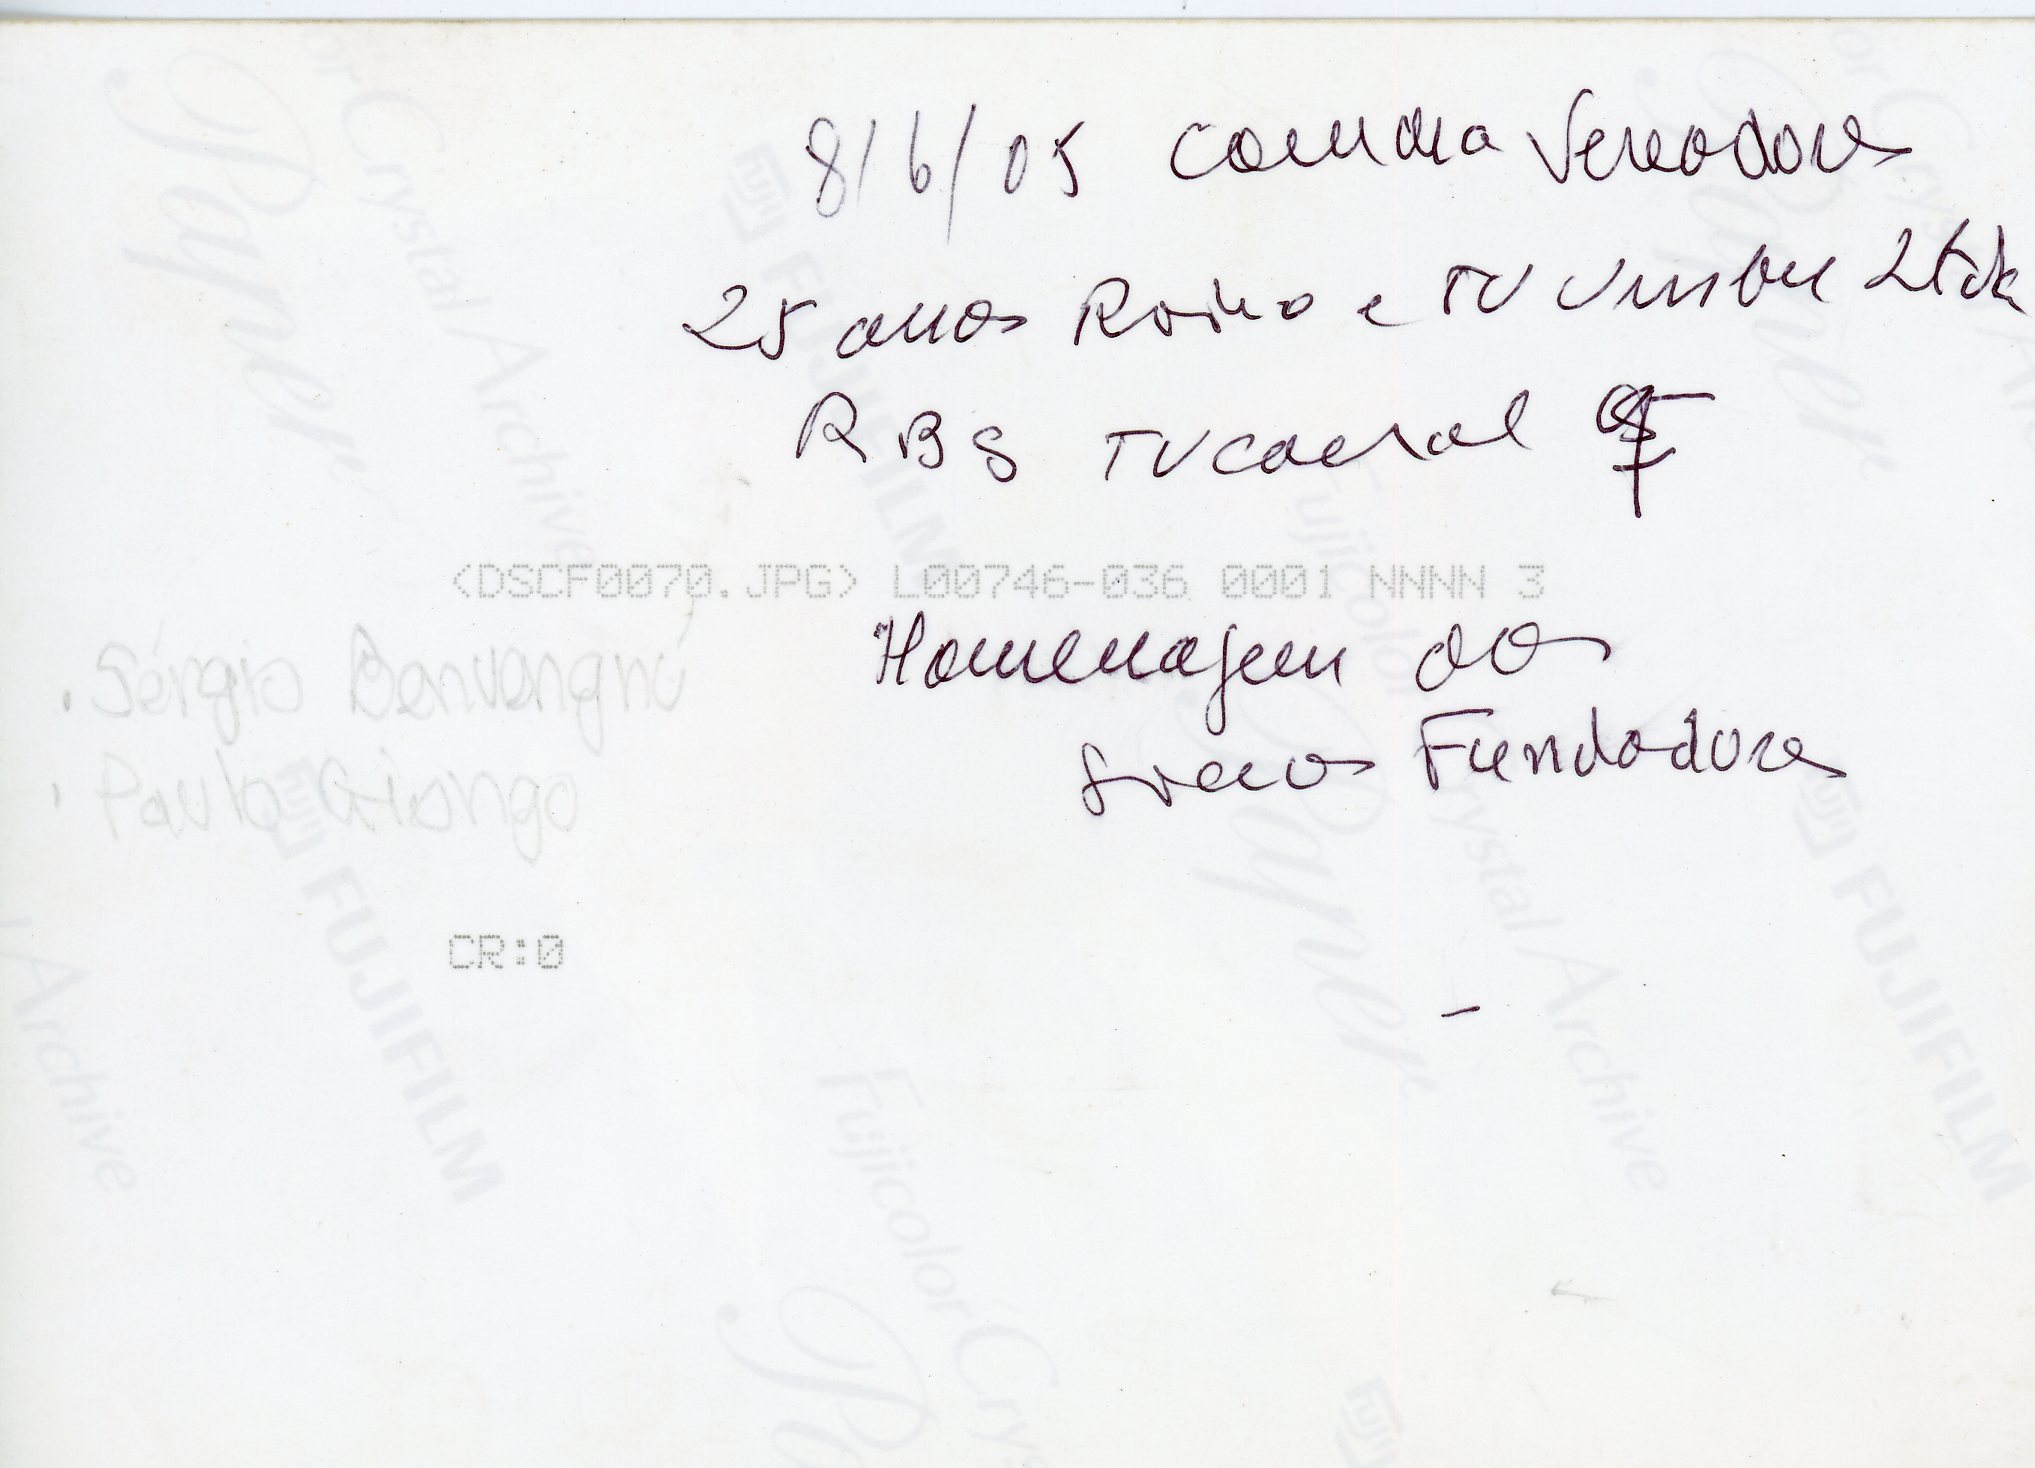 8/6/05 Camara Vereadores
25 anos Radio e TV Umbu Ltda
RBS TV canal
<DSCF0070.JPG> L00746-036 0001 NNNN 3
Homenagem aos
Socios Fundadores
. Sérgio Benvengnú
. Paulo Giongo
CR:0
Fujicolor Crystal Archive Paper
FUJIFILM